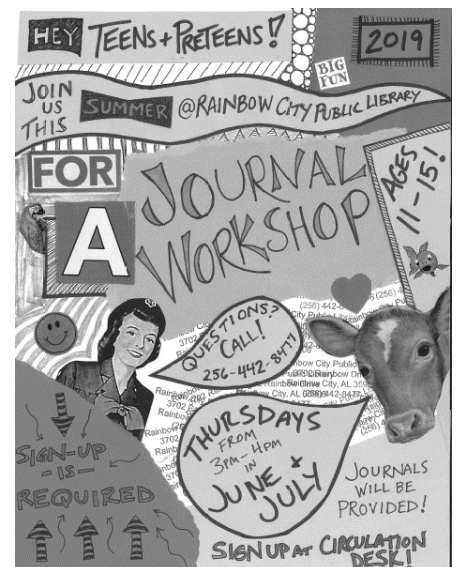 HEY TEENS + PRETEENS!
2019
BIG
FUN
JOIN
US
THIS
SUMMER @RAINBOW CITY PUBLIC LIBRARY
FOR
A
JOURNAL
WORKSHOP
AGES
11-15!
QUESTIONS?
CALL!
256-442-8477
THURSDAYS
FROM
3PM-4PM
IN
JUNE +
JULY
SIGN-UP
-IS-
REQUIRED
JOURNALS
WILL BE
PROVIDED!
SIGN UP AT CIRCULATION
DESK!